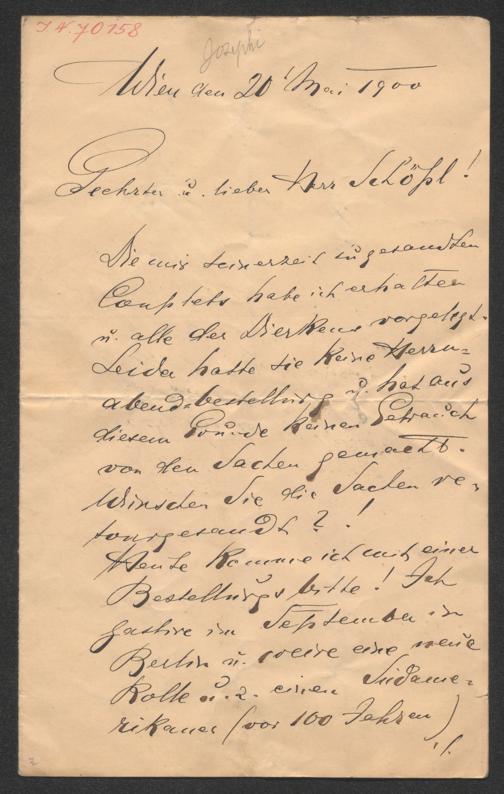 I.N. 70158
Josephi
Wien den 20' Mai 1900
Geehrter u. lieber Herr Schößl!
Die mir seinerzeit zugesandten
Couplets habe ich erhalten
u. alle der Dierkens vorgelegt.
Leider hatte sie keine Herrn-
abend-bestellung u. hat aus
diesem Grunde keinen Gebrauch
von den Sachen gemacht.
Wünschen Sie die Sachen re-
tourgesandt?!
Heute komme ich mit einer
Bestellungs bitte! Ich
gastire im September in
Berlin u. creire eine neue
Rolle u. z. einen Südame-
rikaner (vor 100 Jahren)
./.